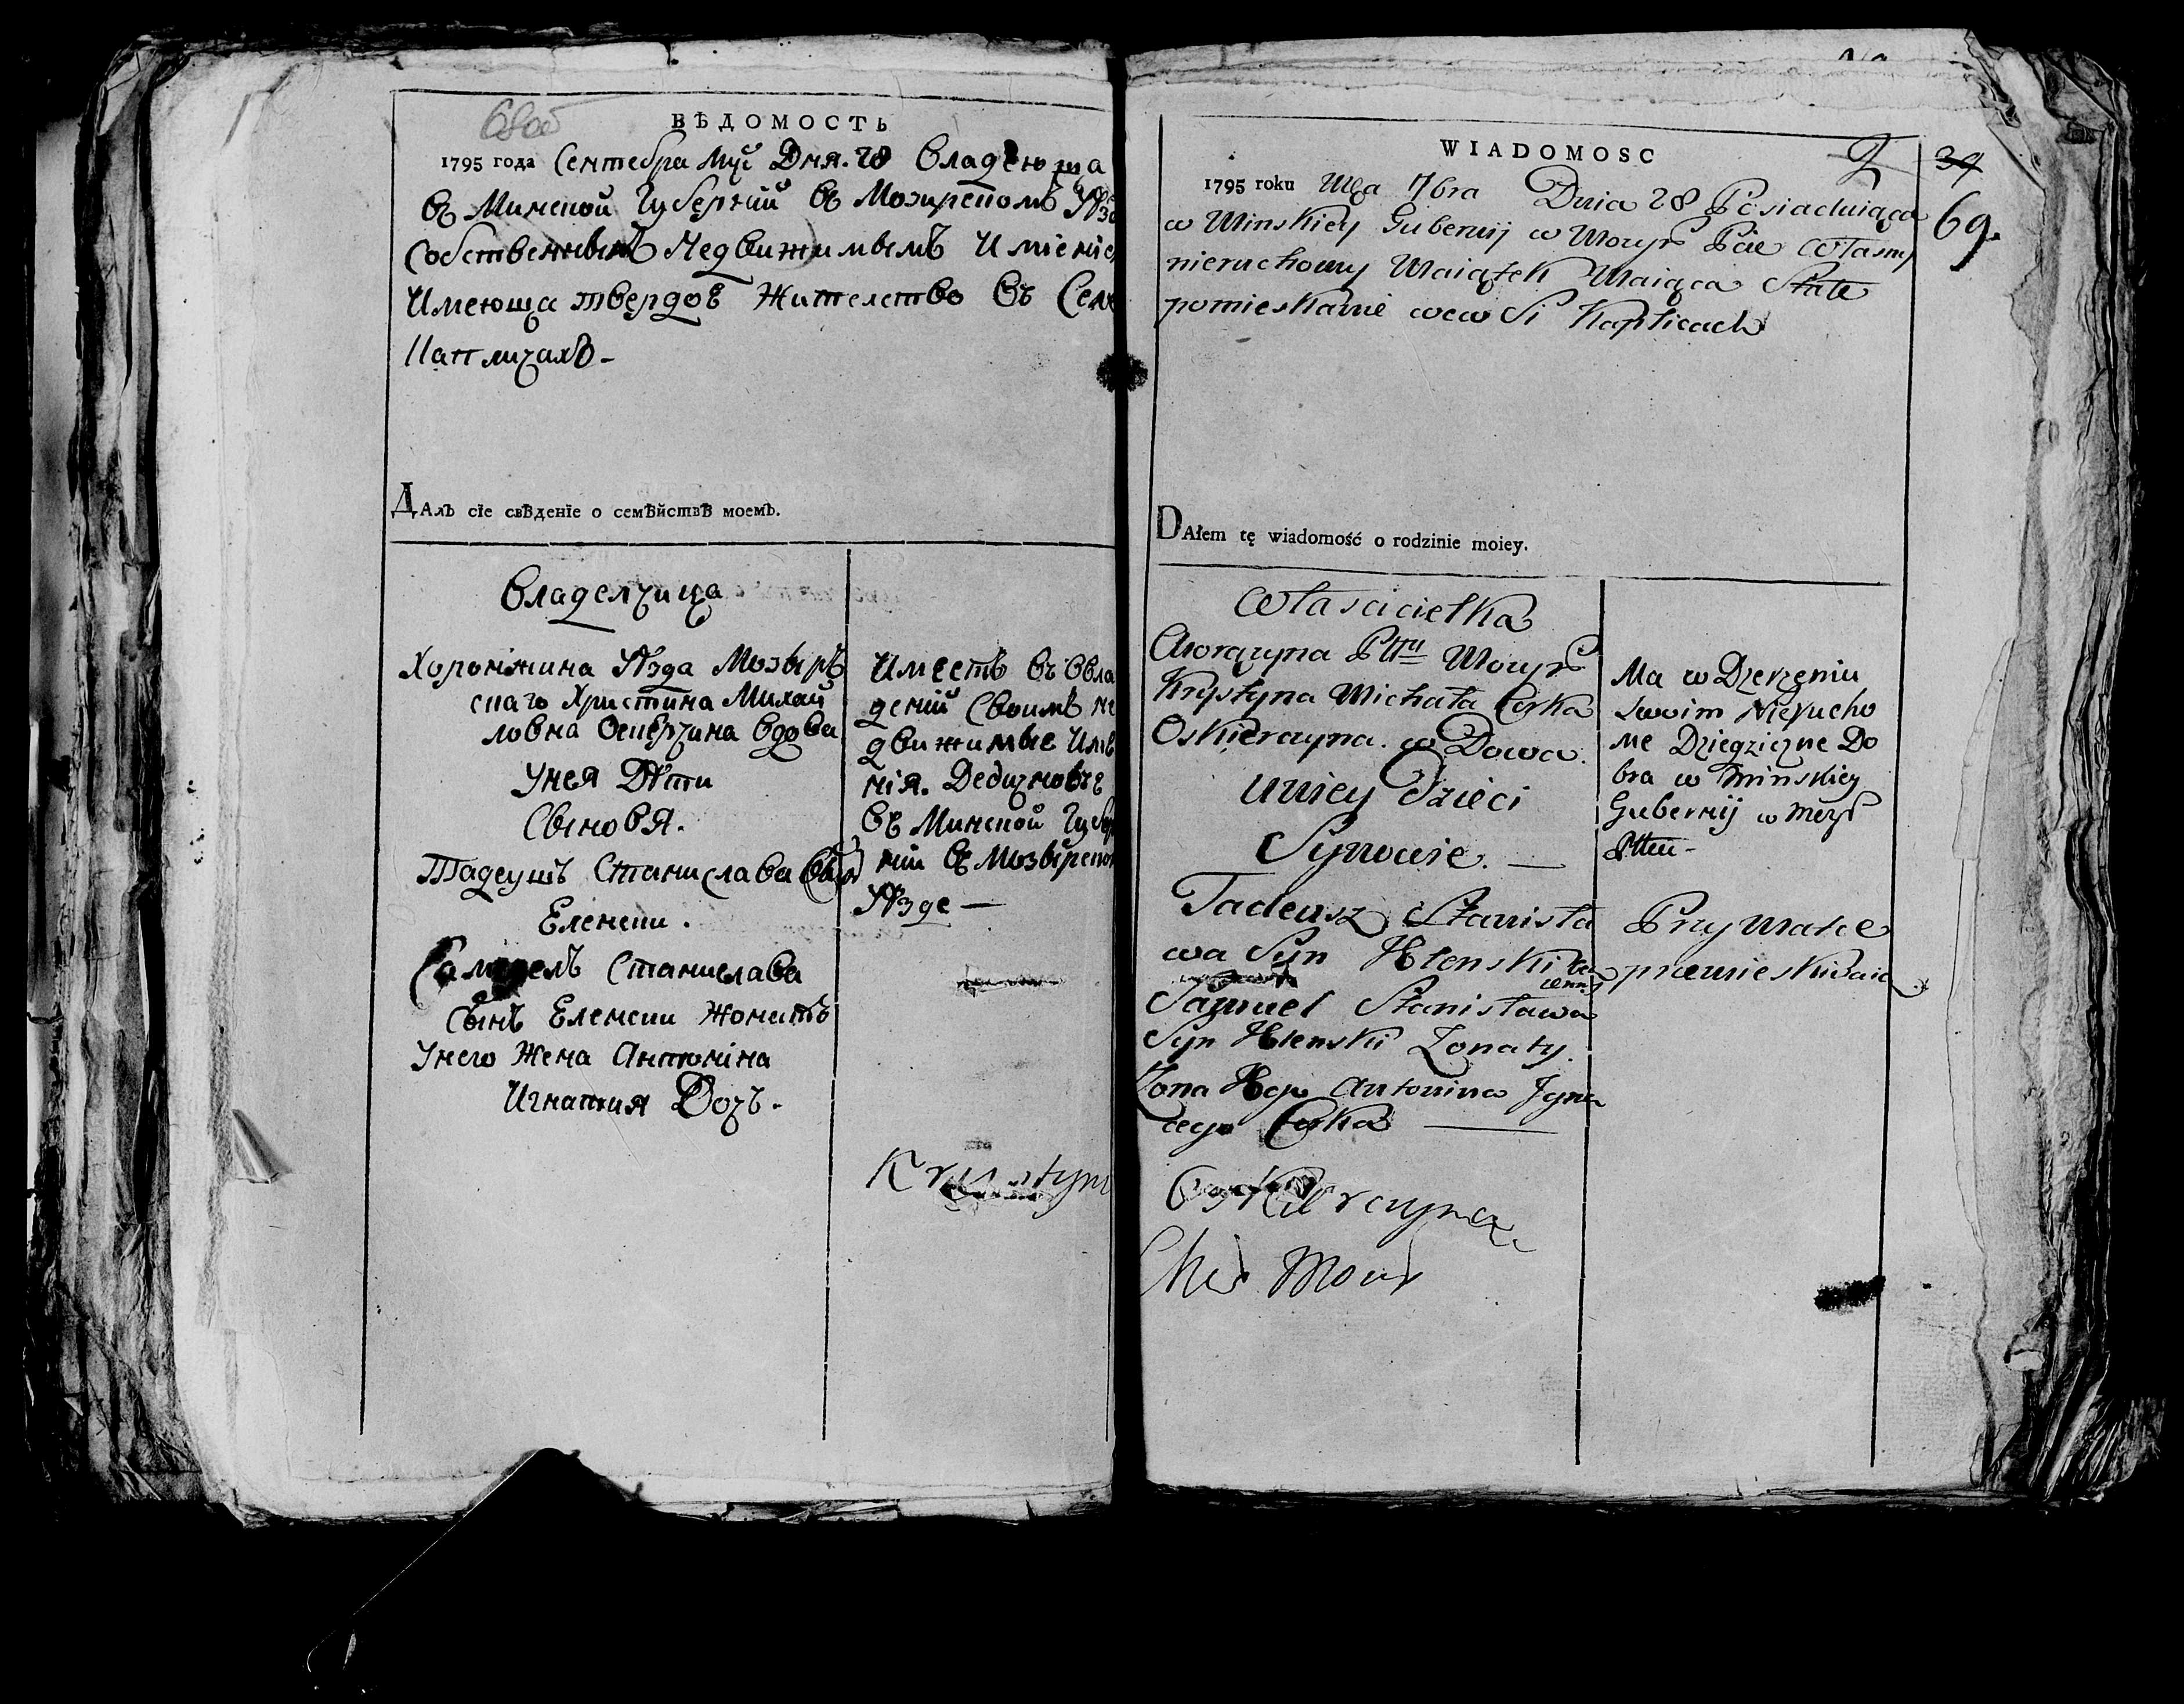 68об
ВѢДОМОСТЬ
1795 года Сентебра Мца Дня. 28 Владеюща
въ Минской Губерніи въ Мозирскомъ Уѣз
Собственнымъ Недвижимымъ Имѣніе
Имеюща твердое Жителство въ Селе
Каплицахъ-
Далъ сіе свѣденіе о семѣйствѣ моемъ.
Владелчица
Хоронжина Уѣзда Мозыр
скаго Христина Михай
ловна Оскерчина вдова
Унея Дѣти
Сыновя.
Тадеушъ Станислава Сын
Еленски.
Самуелъ Станислава
Сынъ Еленски Жонатъ
Унего Жена Антонина
Игнатия Дочь.
Имеетъ въ Вла
деніи Своимъ не
движимые Име
нія. Дедичновъе
въ Минской Губер
ніи въ Мозырском
Уѣзде —
Krystyna
WIADOMOSC
2
39
69.
1795 roku Mca 7bra Dnia 28 Posiadaiąca
w Minskiey Gubernij w Mozyr Pcie własny
nieruchomy Maiątek Maiąca Stałe
pomieszkanie wewsi Kaplicach
DAłem tę wiadomość o rodzinie moiey.
Włascicielka
Chorązyna Pttu Mozyr
Krystyna Michała Corka
Oskierczyna. w Dowa.
Uniey Dzieci
Synowie. —
Tadeusz Stanisła
wa Syn Jelenski
Samuel Stanisława
Syn Jelenski Zonaty.
Zona Jego Antonina Igna
cego Corka —
Oskierczyna
Cho Mozyr
Ma w Dzerzeniu
Swoim Nierucho
me Dziedziczne Do
bra w Minskiey
Gubernij w Mozyr
Pttcie-
Przy Matce
przemieszkiwaią